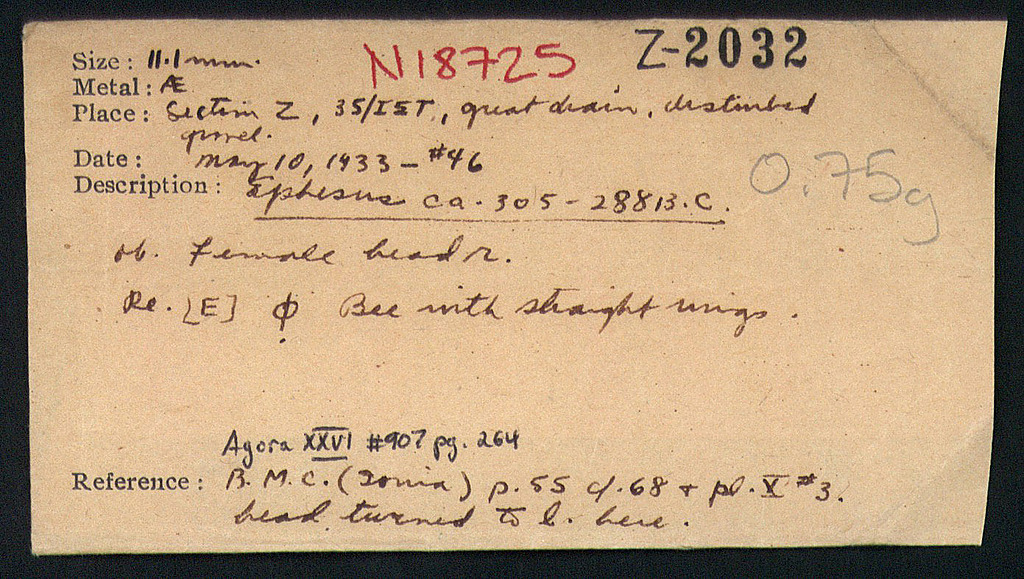 Size : 11.1 mm. N18725 Z-2032
Metal : Æ
Place : Section Z, 35/IΣT, great drain, disturbed
gravel.
Date : May 10, 1933 - #46
Description : Ephesus ca. 305 - 288 B.C. 0.75g
ob. Female head r.
Re. [E] Φ Bee with straight wings.
Agora XXVI #907 pg. 264
Reference : B.M.C. (Ionia) p.55 cf. 68 + pl. X #3.
head turned to l. here.